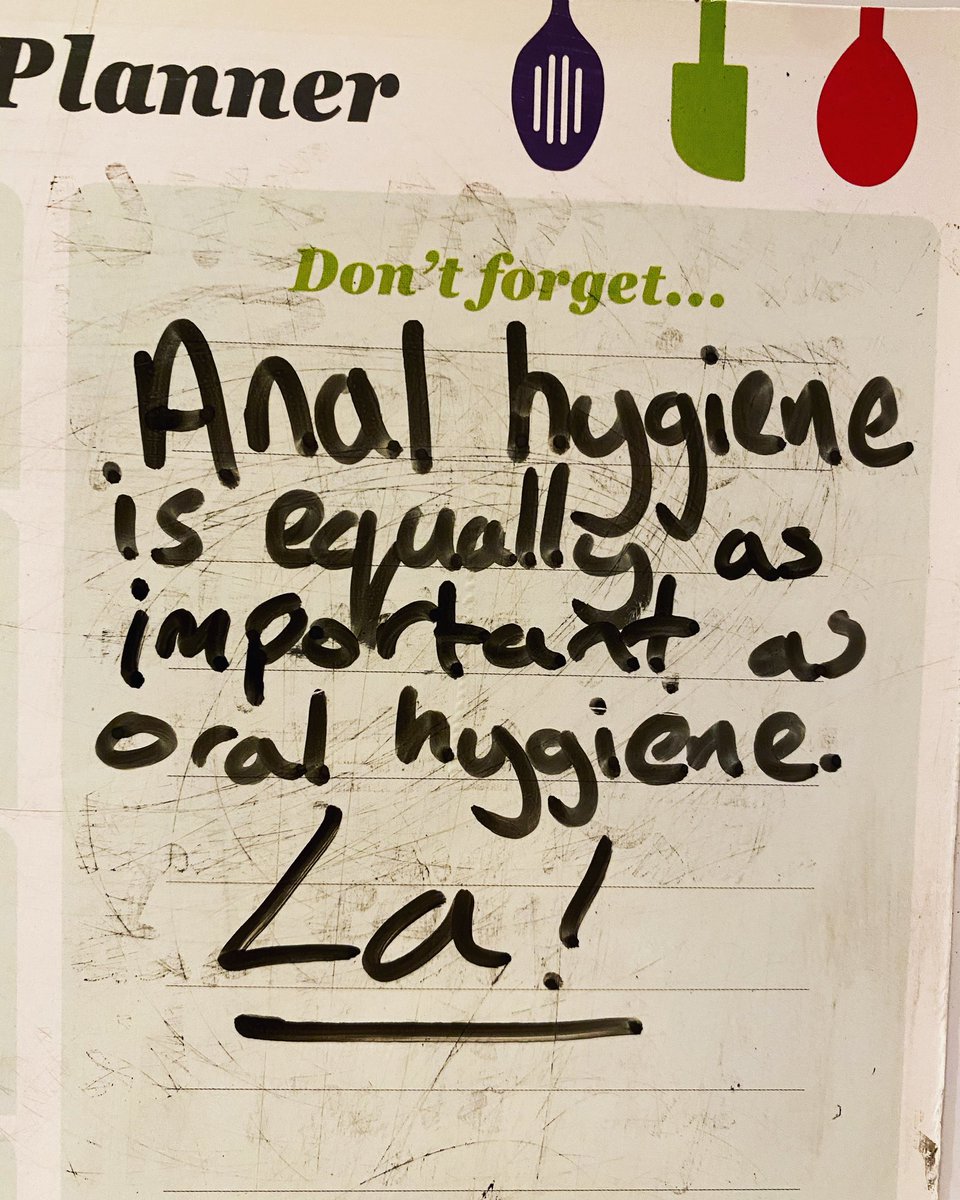 Planner
Don't forget...
Anal hygiene
is equally as
important as
oral hygiene.
La!